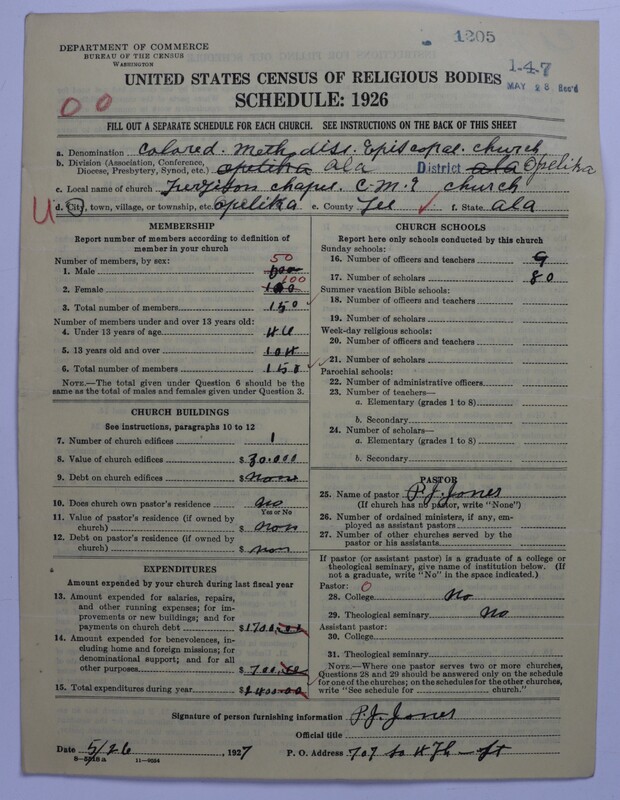 1205
DEPARTMENT OF COMMERCE
BUREAU OF THE CENSUS
WASHINGTON
1-4-7
MAY 28 Rec'd
UNITED STATES CENSUS OF RELIGIOUS BODIES
SCHEDULE: 1926
00
FILL OUT A SEPARATE SCHEDULE FOR EACH CHURCH. SEE INSTRUCTIONS ON THE BACK OF THIS SHEET
a. Denomination Colored Methodist Episcopal church
b. Division (Association, Conference, Diocese, Presbytery, Synod, etc.) opelika ala District ala Opelika
c. Local name of church chapel C.M.E church
U d. City, town, village, or township, etc. opelika e. County Lee f. State ala
MEMBERSHIP
Report number of members according to definition of
member in your church
Number of members, by sex:
1. Male 50
2. Female 100
3. Total number of members 150
Number of members under and over 13 years old:
4. Under 13 years of age 46
5. 13 years old and over 104
6. Total number of members 150
NOTE.—The total given under Question 6 should be the
same as the total of males and females given under Question 3.
CHURCH BUILDINGS
See instructions, paragraphs 10 to 12
7. Number of church edifices 1
8. Value of church edifices $30.000
9. Debt on church edifices $None
10. Does church own pastor's residence No
Yes or No
11. Value of pastor's residence (if owned by
church) $non
12. Debt on pastor's residence (if owned by
church) $non
EXPENDITURES
Amount expended by your church during last fiscal year
13. Amount expended for salaries, repairs,
and other running expenses; for im-
provements or new buildings; and for
payments on church debt $1700.00
14. Amount expended for benevolences, in-
cluding home and foreign missions; for
denominational support; and for all
other purposes $700.00
15. Total expenditures during year $2400.00
CHURCH SCHOOLS
Report here only schools conducted by this church
Sunday schools:
16. Number of officers and teachers 9
17. Number of scholars 80
Summer vacation Bible schools:
18. Number of officers and teachers
19. Number of scholars
Week-day religious schools:
20. Number of officers and teachers
21. Number of scholars
Parochial schools:
22. Number of administrative officers
23. Number of teachers—
a. Elementary (grades 1 to 8)
b. Secondary
24. Number of scholars—
a. Elementary (grades 1 to 8)
b. Secondary
PASTOR
25. Name of pastor P.J. Jones
(If church has no pastor, write "None")
26. Number of ordained ministers, if any, em-
ployed as assistant pastors
27. Number of other churches served by the
pastor or his assistants
If pastor (or assistant pastor) is a graduate of a college or
theological seminary, give name of institution below. (If
not a graduate, write "No" in the space indicated.)
Pastor: 0
28. College No
29. Theological seminary No
Assistant pastor:
30. College
31. Theological seminary
NOTE.—Where one pastor serves two or more churches,
Questions 28 and 29 should be answered only on the schedule
for one of the churches; on the schedules for the other churches,
write "See schedule for church."
Signature of person furnishing information P.J. Jones
Official title
Date 5/26, 1927 P. O. Address 707 So 4th st
8-5518a 11-8054